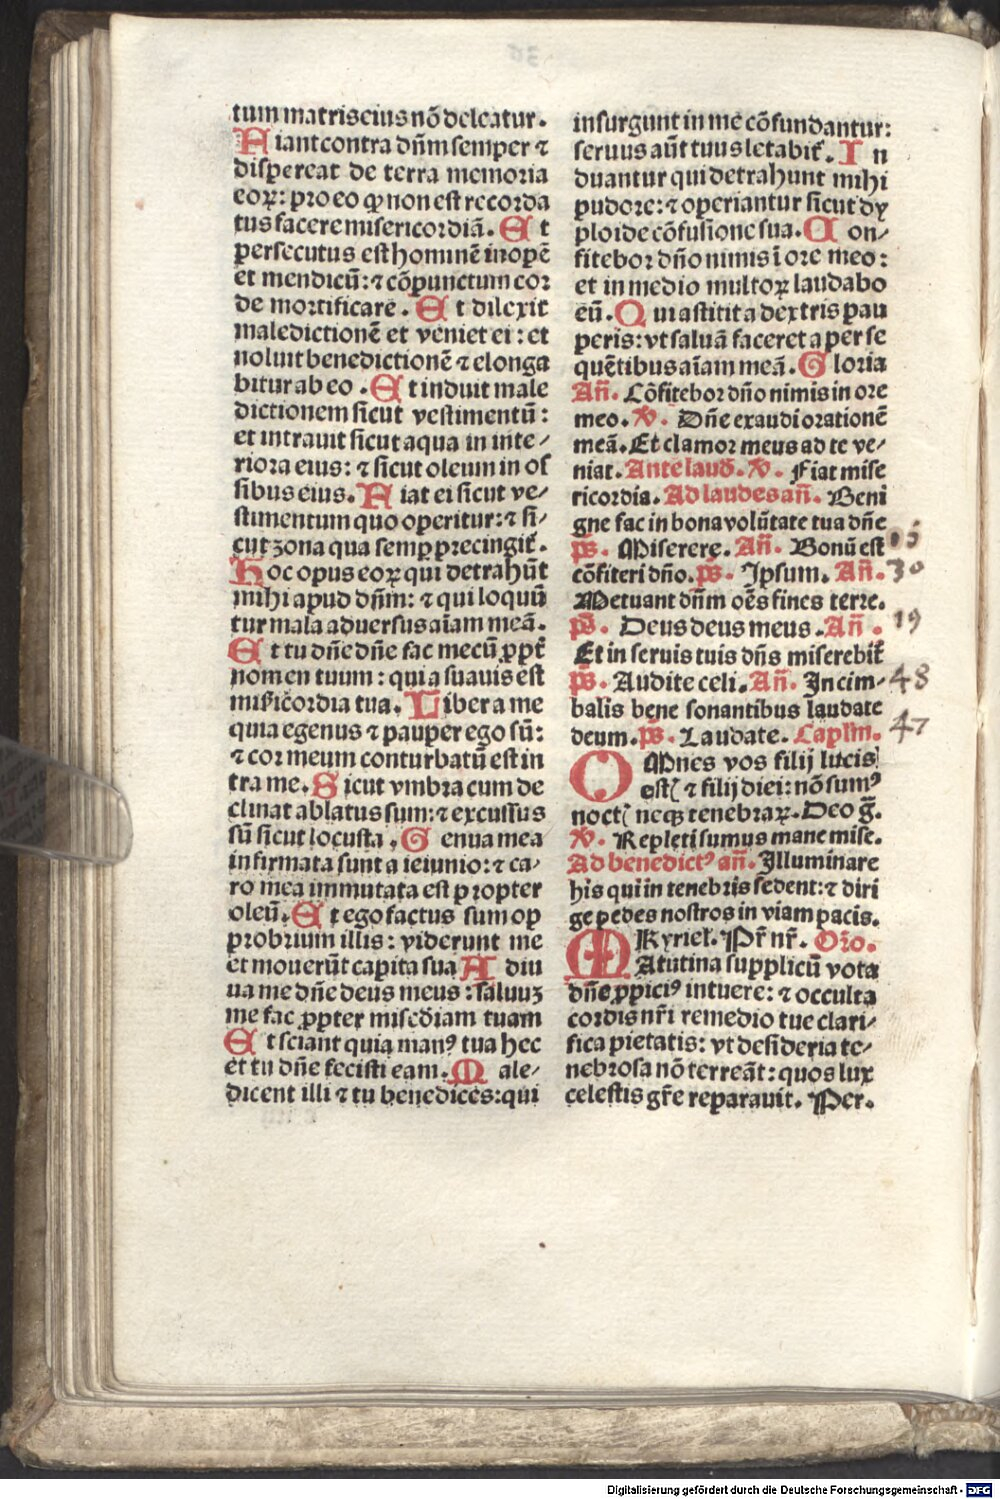 tum matris eius nō deleatur.
Fiant contra dn̄m semper ⁊
dispereat de terra memoria
eoꝝ: pro eo ꝙ non est recorda
tus facere misericordiā. Et
persecutus est hominē inopē
et mendicū: ⁊ cōpunctum cor
de mortificare. Et dilexit
maledictionē et veniet ei: et
noluit benedictionē ⁊ elonga
bitur ab eo. Et induit male
dictionem sicut vestimentū:
et intrauit sicut aqua in inte/
riora eius: ⁊ sicut oleum in os
sibus eius. Fiat ei sicut ve/
stimentum quo operitur: ⁊ si/
cut zona qua semꝑ precingit̄.
Hoc opus eoꝝ qui detrahūt
mihi apud dn̄m: ⁊ qui loquū
tur mala aduersus aīam meā.
Et tu dn̄e dn̄e fac mecū ꝓpt̄
nomen tuum: quia suauis est
mis̄icordia tua. Libera me
quia egenus ⁊ pauper ego sū:
⁊ cor meum conturbatū est in
tra me. Sicut vmbra cum de
clinat ablatus sum: ⁊ excussus
sū sicut locusta. Genua mea
infirmata sunt a ieiunio: ⁊ ca/
ro mea immutata est propter
oleū. Et ego factus sum op
probrium illis: viderunt me
et mouerūt capita sua Adiu
ua me dn̄e deus meus: saluuꝫ
me fac ꝓpter mis̄ediam tuam
Et sciant quia manꝰ tua hec
et tu dn̄e fecisti eam. Male/
dicent illi ⁊ tu benedices: qui
insurgunt in me cōfundantur:
seruus aūt tuus letabit̄. In
duantur qui detrahunt mihi
pudore: ⁊ operiantur sicut dy
ploide cōfusione sua. Con/
fitebor dn̄o nimis ī ore meo:
et in medio multoꝝ laudabo
eū. Quia stitit a dextris pau
peris: vt saluā faceret a perse
quētibus aīam meā. Gloria
An̄. Cōfitebor dn̄o nimis in ore
meo. ℣. Dn̄e exaudi orationē
meā. Et clamor meus ad te ve/
niat. Ante laud̄. ℣. Fiat mise
ricordia. Ad laudes an̄. Beni
gne fac in bona volūtate tua dn̄e
ps̄. Miserere. An̄. Bonū est
cōfiteri dn̄o. ps̄. Ipsum. An̄. 30
Metuant dn̄m oēs fines terre.
ps̄. Deus deus meus. An̄. 19
Et in seruis tuis dn̄s miserebit̄
ps̄. Audite celi. An̄. In cim/ 48
balis bene sonantibus laudate
deum. ps̄. Laudate. Caplm̄. 47
OMnes vos filij lucis
estꝭ ⁊ filij diei: nō sumꝰ
noctꝭ neqꝫ tenebraꝝ. Deo gr̄.
℣. Repleti sumus mane mise.
Ad benedictꝰ an̄. Illuminare
his qui in tenebris sedent: ⁊ diri
ge pedes nostros in viam pacis.
Kyriel̄. Pr̄ nr̄. Or̄o.
MAtutina supplicū vota
dn̄e ꝓpiciꝰ intuere: ⁊ occulta
cordis nr̄i remedio tue clari/
fica pietatis: vt desideria te/
nebrosa nō terreāt: quos lux
celestis gr̄e reparauit. Per.
Digitalisierung gefördert durch die Deutsche Forschungsgemeinschaft - DFG